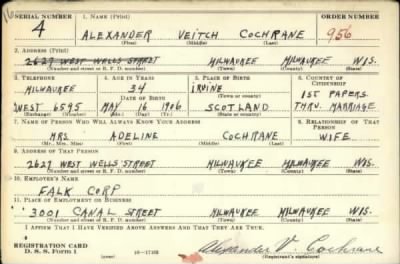 SERIAL NUMBER 1. NAME (Print) ORDER NUMBER
4 ALEXANDER VEITCH COCHRANE 956
(First) (Middle) (Last)
2. ADDRESS (Print)
2627 WEST WELLS STREET MILWAUKEE MILWAUKEE WIS.
(Number and street or R. F. D. number) (Town) (County) (State)
3. TELEPHONE 4. AGE IN YEARS 5. PLACE OF BIRTH 6. COUNTRY OF CITIZENSHIP
MILWAUKEE 34 IRVINE 1ST PAPERS
DATE OF BIRTH (Town or county)
WEST 6595 MAY 16 1906 SCOTLAND THRU. MARRIAGE
(Exchange) (Number) (Mo.) (Day) (Yr.) (State or country)
7. NAME OF PERSON WHO WILL ALWAYS KNOW YOUR ADDRESS 8. RELATIONSHIP OF THAT PERSON
MRS. ADELINE COCHRANE WIFE
(Mr., Mrs., Miss) (First) (Middle) (Last)
9. ADDRESS OF THAT PERSON
2627 WEST WELLS STREET MILWAUKEE MILWAUKEE WIS.
(Number and street or R. F. D. number) (Town) (County) (State)
10. EMPLOYER'S NAME
FALK CORP
11. PLACE OF EMPLOYMENT OR BUSINESS
3001 CANAL STREET MILWAUKEE MILWAUKEE WIS.
(Number and street or R. F. D. number) (Town) (County) (State)
I AFFIRM THAT I HAVE VERIFIED ABOVE ANSWERS AND THAT THEY ARE TRUE.
REGISTRATION CARD
D. S. S. Form 1 (over) 16—17105 Alexander V. Cochrane
(Registrant's signature)